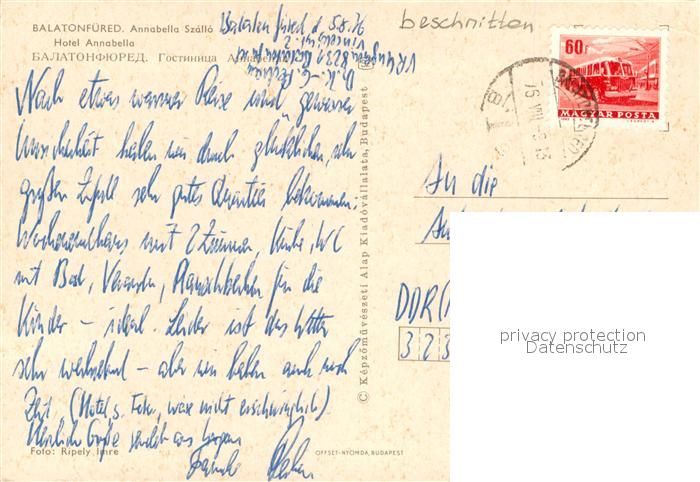 BALATONFÜRED. Annabella Szálló
Hotel Annabella
БАЛАТОНФЮРЕД. Гостиница
Balatonfüred d. 5.8.76
beschnitten
60f
MAGYAR POSTA
Nach etwas warmer Reise und gewisser
Unsicherheit haben wir durch glücklichen, sehr
großen Zufall sehr gutes Quartier bekommen.
Wochenendhaus mit 2 Zimmern, Küche, WC
mit Bad, Veranda, Planschbecken für die
Kinder – ideal. Leider ist das Wetter
sehr wechselnd – aber wir haben auch noch
Zeit. (Hotel s. Foto, wäre nicht erschwinglich).
Herzliche Grüße sendet aus Ungarn
Familie
Foto: Ripely Imre
OFFSET-NYOMDA, BUDAPEST
© Képzőművészeti Alap Kiadóvállalata, Budapest
An die
DDR
323
privacy protection
Datenschutz